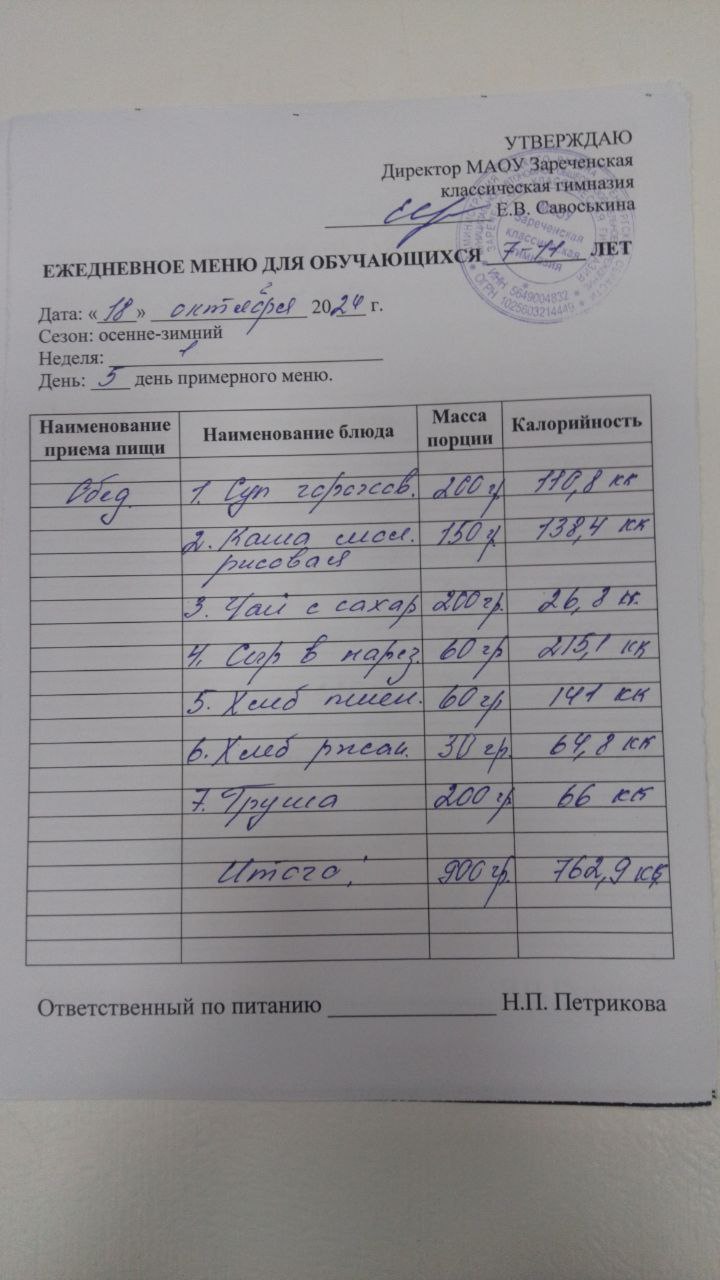 УТВЕРЖДАЮ
Директор МАОУ Зареченская
классическая гимназия
Е.В. Савоськина
ЕЖЕДНЕВНОЕ МЕНЮ ДЛЯ ОБУЧАЮЩИХСЯ 7-11 ЛЕТ
Зареченская
классическая
гимназия
ИНН 5649004832
ОГРН 1025603214449
Дата: «18» октября 2024 г.
Сезон: осенне-зимний
Неделя: 1
День: 5 день примерного меню.
Наименование приема пищи Наименование блюда Масса порции Калорийность
Обед 1. Суп горохов. 200 гр 110,8 кк
2. Каша мол. 150 гр 138,4 кк
рисовая
3. Чай с сахар 200 гр. 26,8 кк.
4. Сыр в нарез. 60 гр 215,1 кк
5. Хлеб пшен. 60 гр 141 кк
6. Хлеб ржан. 30 гр. 64,8 кк
7. Груша 200 гр 66 кк
Итого: 900 гр. 762,9 кк
Ответственный по питанию Н.П. Петрикова